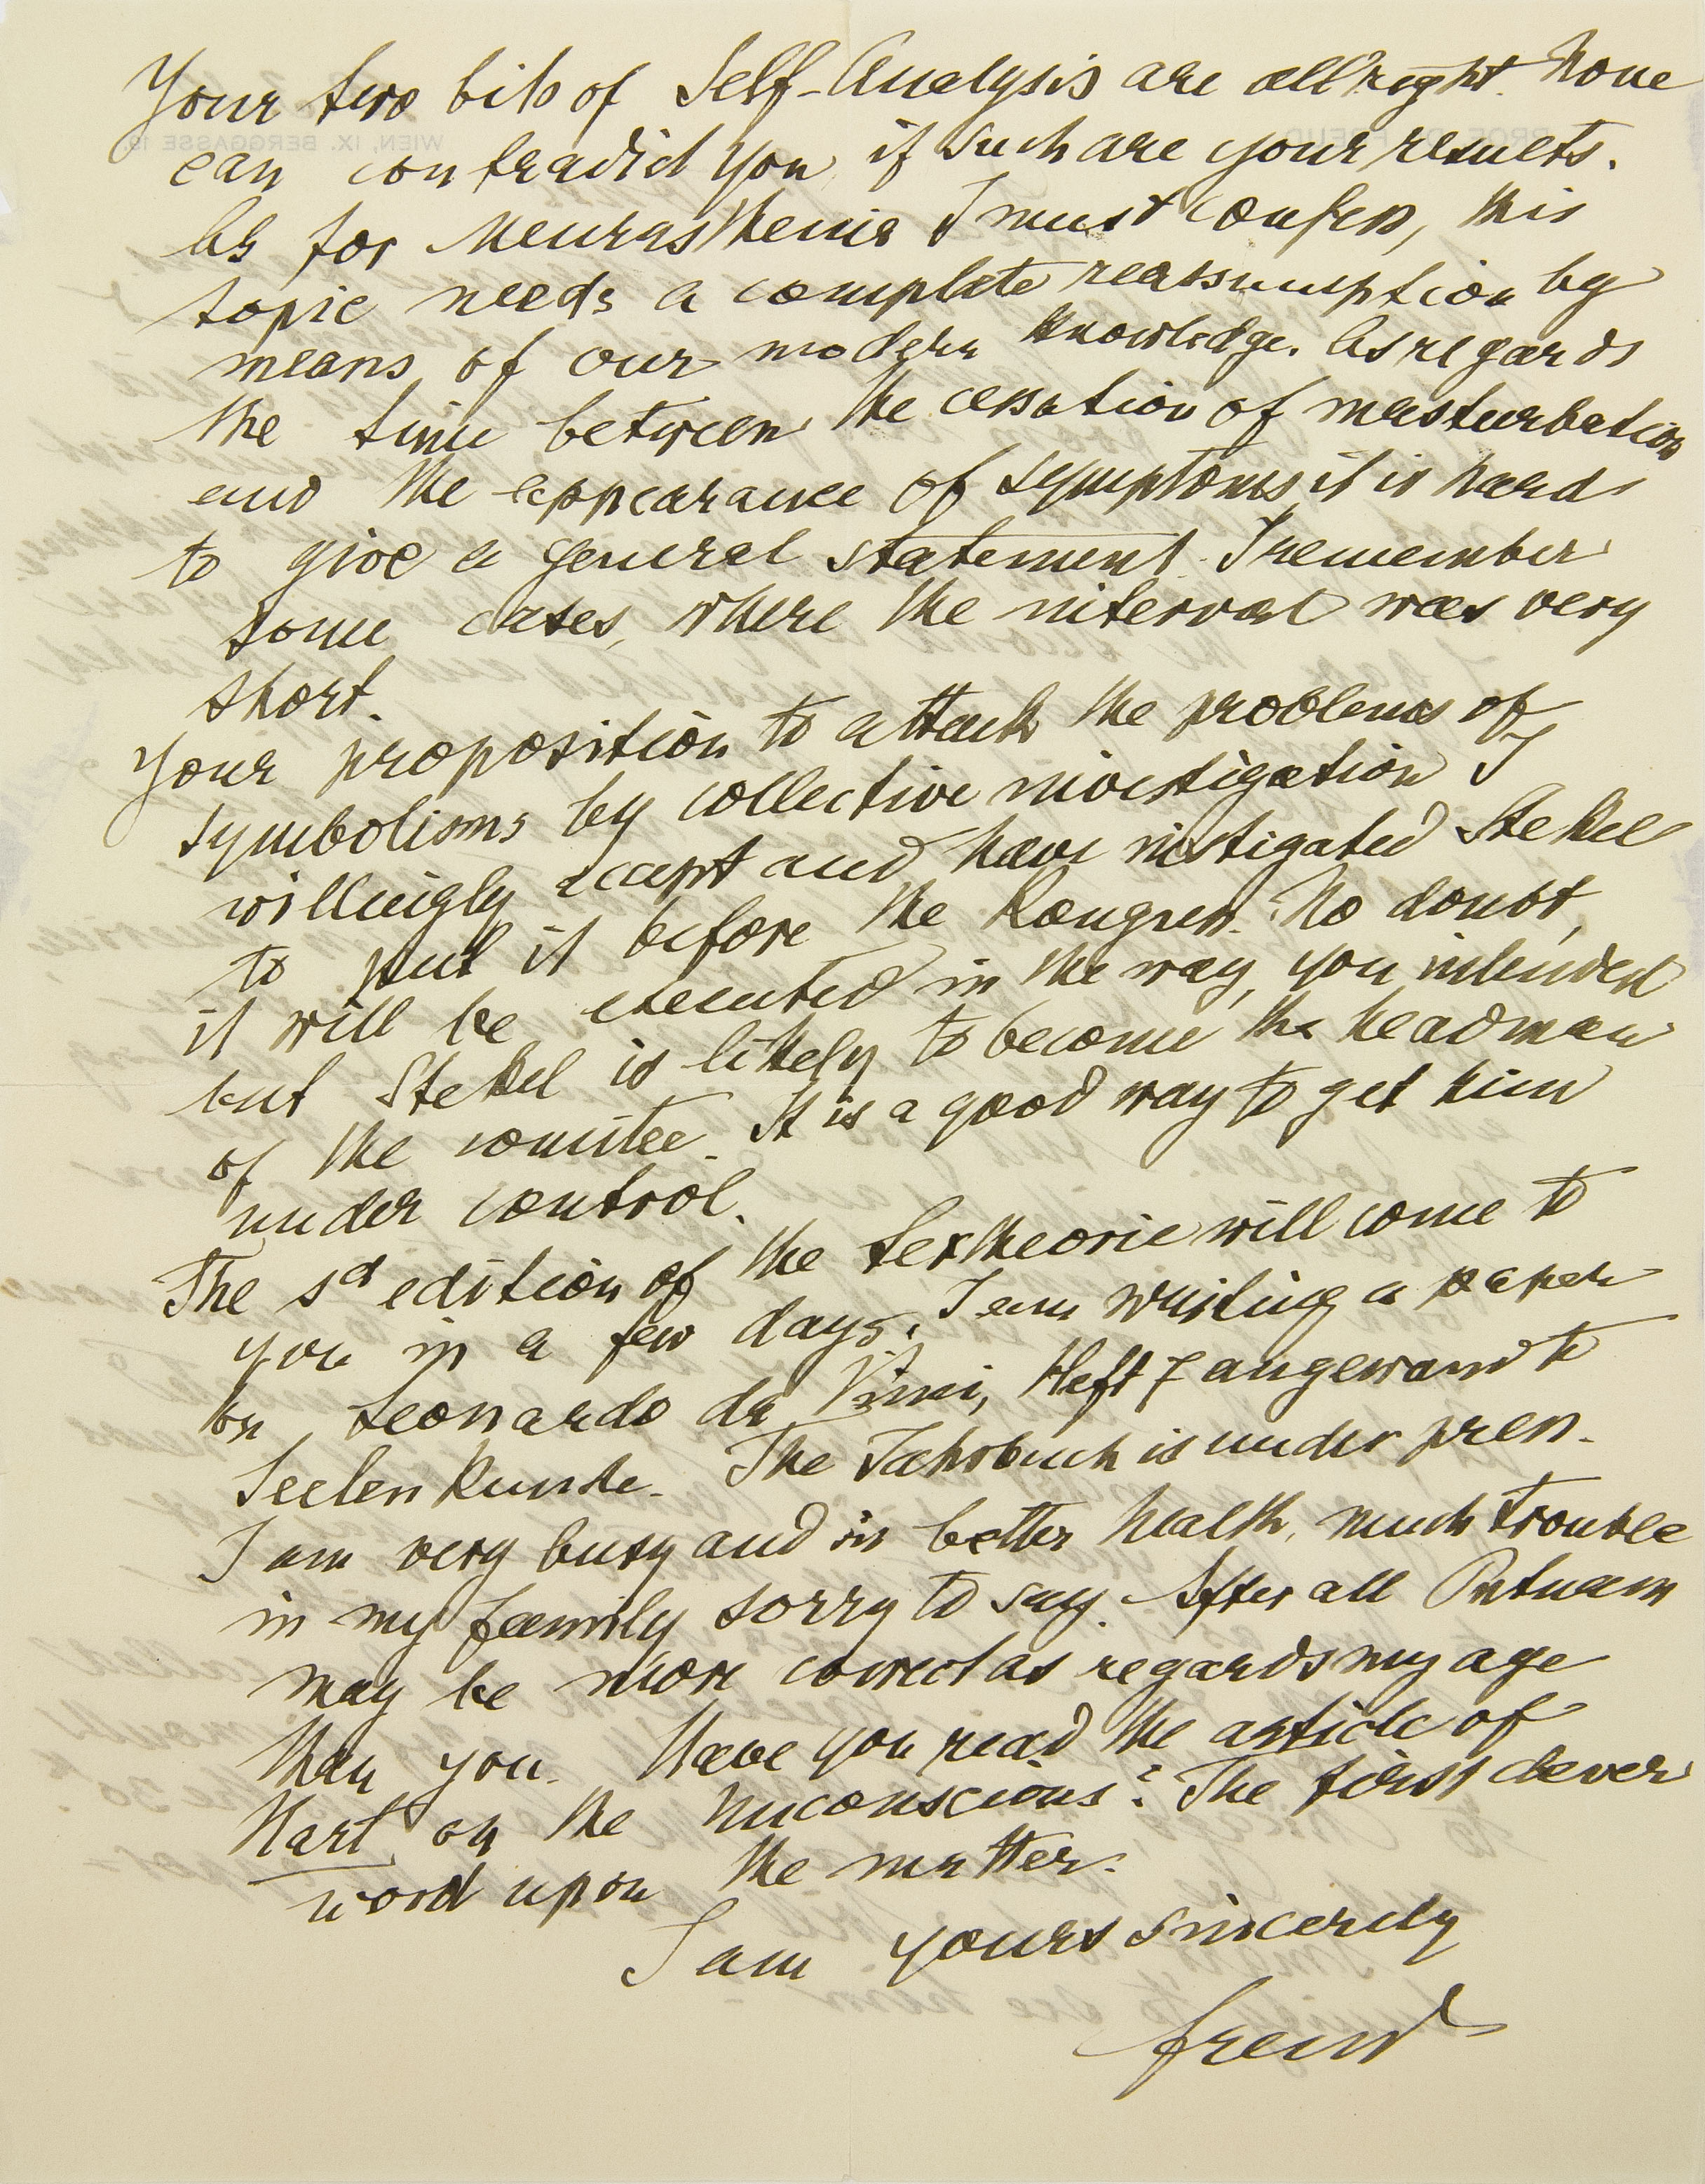 Your two bits of Self-Analysis are all right. None
can contradict you, if such are your results.
As for Neurasthenia I must confess, this
topic needs a complete reassumption by
means of our modern knowledge. As regards
the time between the cessation of masturbation
and the appearance of symptoms it is hard
to give a general statement. I remember
some cases, where the interval was very
short.
Your proposition to attack the problems of
symbolisms by collective investigation I
willingly accept and have instigated Stekel
to put it before the Kongress. No doubt,
it will be executed in the way, you intended
but Stekel is likely to become the headman
of the comitee. It is a good way to get him
under control.
The sd edition of the Sextheorie will come to
you in a few days. I am writing a paper
on Leonardo da Vinci, Heft 7 angewandte
Seelenkunde. The Jahrbuch is under press.
I am very busy and in better health, much trouble
in my family sorry to say. After all Putnam
may be more correct as regards my age
than you. Have you read the article of
Hart on the Unconscious? The first clever
word upon the matter.
I am yours sincerely
Freud
WIEN, IX. BERGGASSE 19
PROF. DR. FREUD